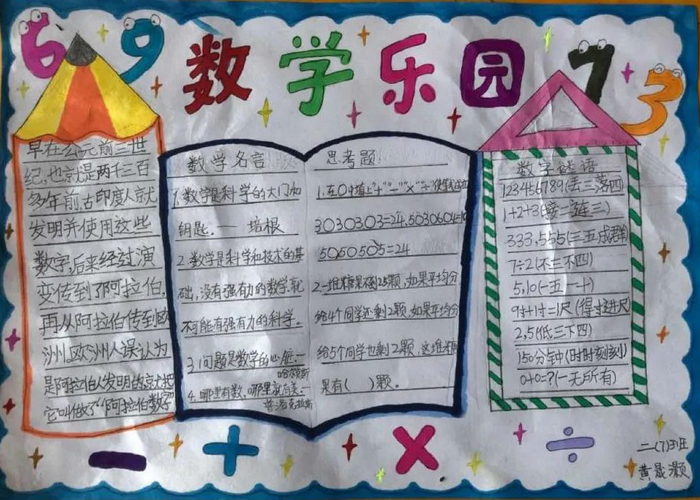 69
数学乐园
73
早在公元前三世
纪,也就是两千三百
多年前古印度人就
发明并使用这些
数字,后来经过演
变传到了阿拉伯,
再从阿拉伯传到欧
洲,欧洲人误认为
是阿拉伯人发明的就把
它叫做了"阿拉伯数字"
数学名言
1.数学是科学的大门和
钥匙.——培根
2.数学是科学和技术的基
础,没有强有力的数学就
不可能有强有力的科学.
3.问题是数学的心脏.—
哈尔莫斯
4.哪里有数,哪里就有美.—
普洛克拉斯
思考题
1.在○中填上"+""-""×""÷"
3○3○3○3=24,
5○5○5○5=24
2.一堆糖果不到25颗,如果平均分
给4个同学还剩2颗,如果平均分
给5个同学也剩2颗,这堆糖
果有( )颗。
数字谜语
1+2+3(接二连三)
333,555(三五成群)
7÷2(不三不四)
5,10(一五一十)
9寸+1寸=1尺(得寸进尺)
2,5(低三下四)
150分钟(时时刻刻)
0+0=?(一无所有)
- + × ÷
二(7)班
黄晟灏